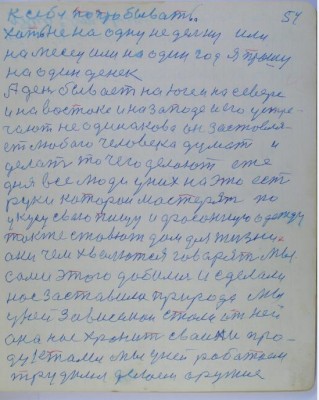 к себе попробывать 54
хатьне на одну неделку или
на месец или на один год я прошу
на один денек
А ден бывает на юге и на севере
и на востоке и на западе и его устре-
чают не одинакова он заставля-
ет любого человека думат и
делат то чего делают еже
дня все люди у них на это ест
руки которои мастерят по
вкусную пищу и одежду
также ставют дом для жизни
они чем хвелются говарят мы
сами этого добилис и сделали
нас заставила природа мы
у ней зависимои стали от ней
она нас хранит сваими про-
дуктами мы у ней работаем
трудимся делаем оружия